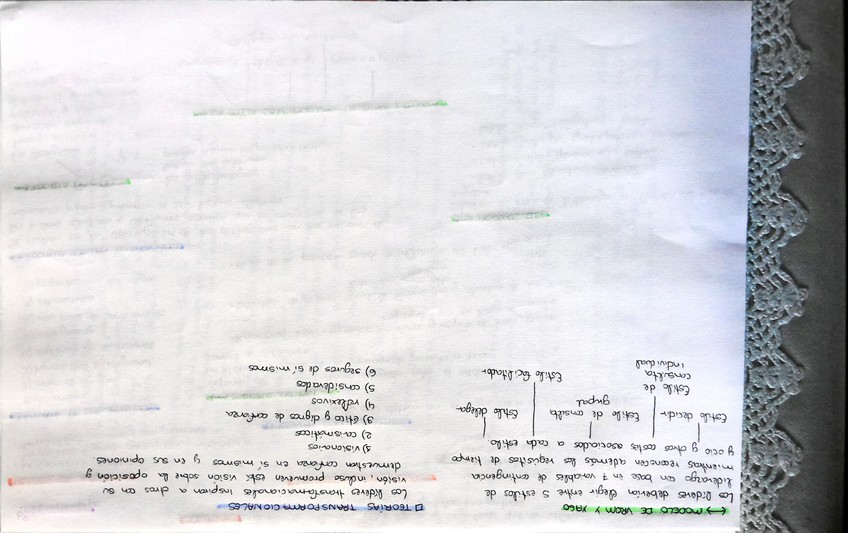 → MODELO DE VROM Y YAGO
Los líderes deberían elegir entre 5 estilos de
liderazgo con base en 7 variables de contingencia
mientras reconocen además los requisitos de tiempo
y ocio y otros costos asociados a cada estilo
Estilo decidir
Estilo de
consulta
individual
Estilo de consulta
grupal
Estilo facilitador
Estilo delegar
□ TEORÍAS TRANSFORMACIONALES
Los líderes transformacionales inspiran a otros con su
visión, incluso promueven esta visión sobre la oposición y
demuestran confianza en sí mismos y en sus opiniones
1) visionarios
2) carismáticos
3) ético y dignos de confianza
4) reflexivos
5) considerados
6) seguros de sí mismos